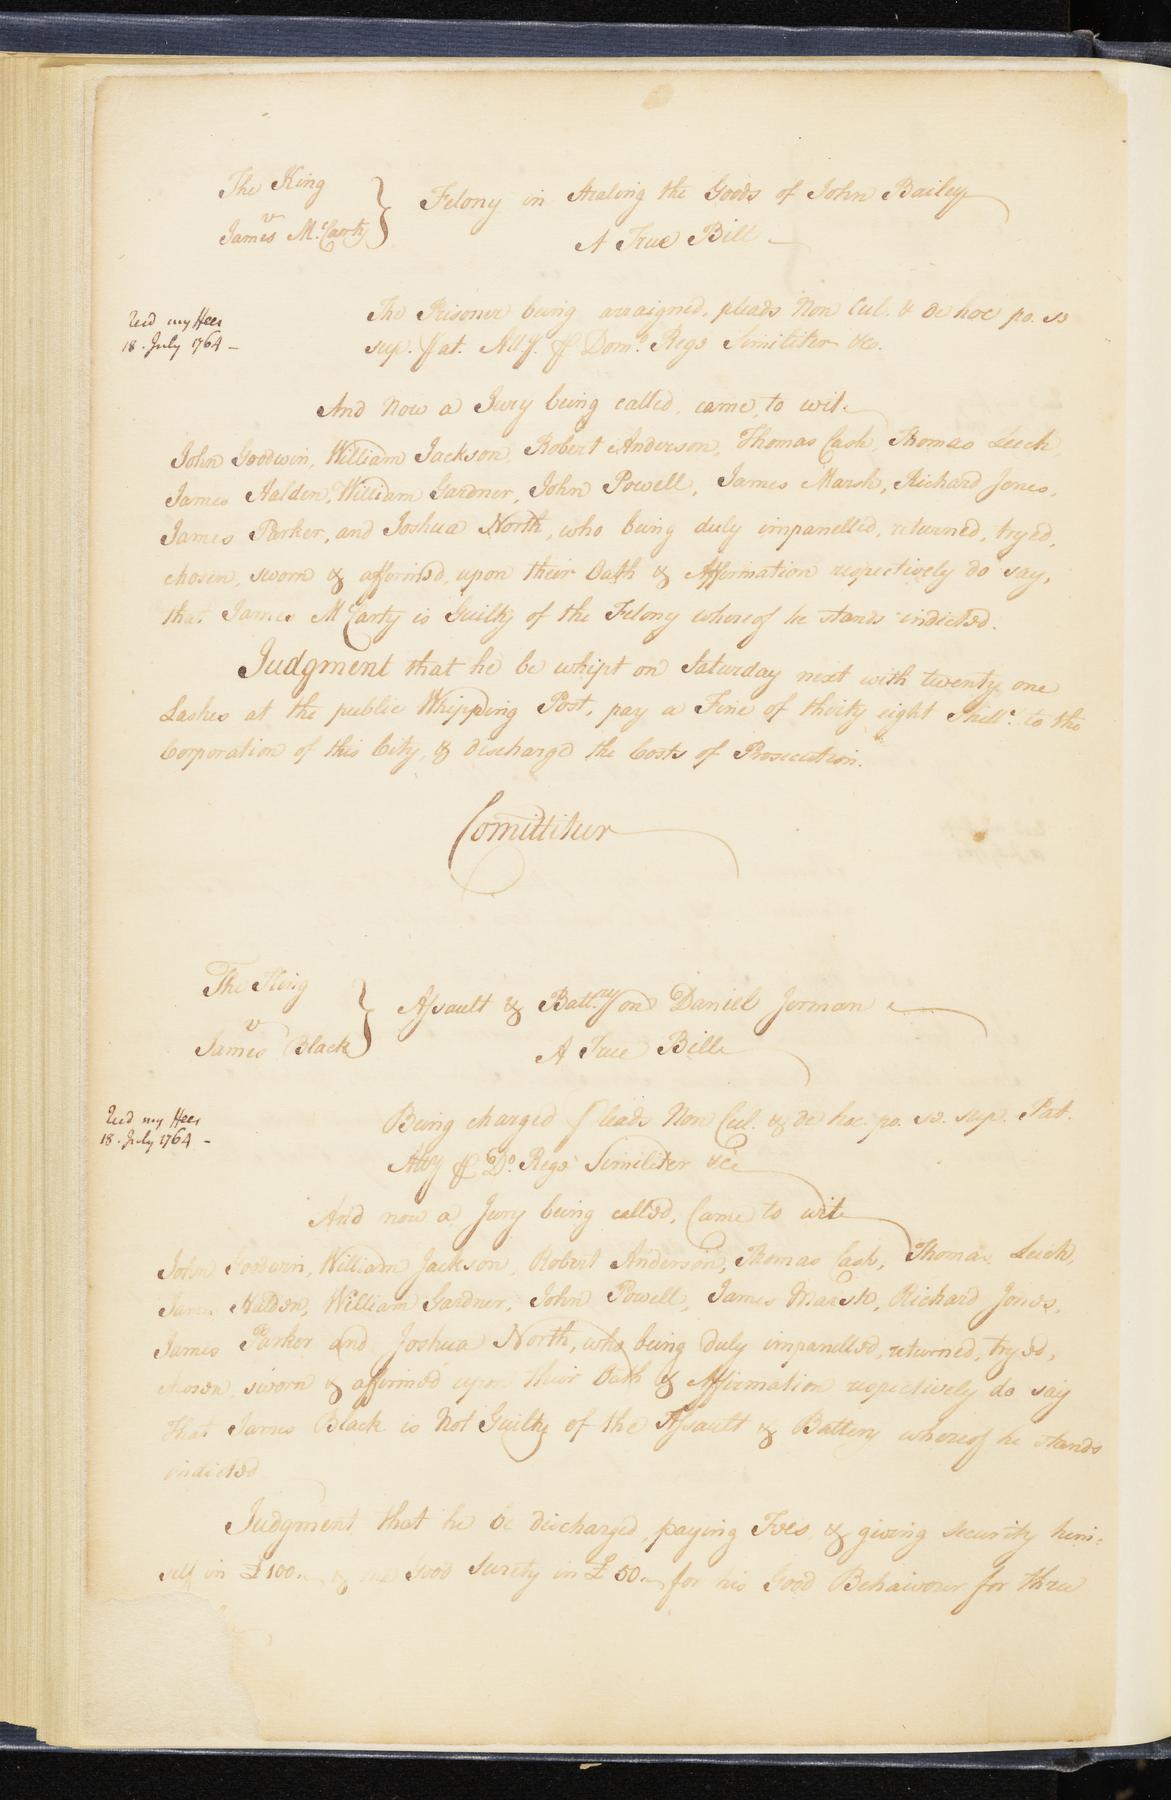 The King
v
James McCarty
Felony in stealing the Goods of John Bailey
A True Bill
Recd my Fees
18. July 1764 –
The Prisoner being arraigned, pleads Non Cul. & de hoc po. se
sup. Pat. Atty. p Dom.o Rege Similiter &c.
And Now a Jury being called, came, to wit.
John Goodwin, William Jackson, Robert Anderson, Thomas Cash, Thomas Leech,
James Halden, William Gardner, John Powell, James Marsh, Richard Jones,
James Parker, and Joshua North, who being duly impanelled, returned, tryed,
chosen, sworn & affirmed, upon their Oath & Affirmation respectively do say,
that James McCarty is Guilty of the Felony whereof he stands indicted.
Judgment that he be whipt on Saturday next with twenty one
Lashes at the public Whipping Post, pay a Fine of thirty eight Shills. to the
Corporation of this City, & discharge the Costs of Prosecution.
Comittitur
The King
v
James Black
Assault & Batt.ry on Daniel Jorman
A True Bill
Recd my Fees
18. July 1764 –
Being charged pleads Non Cul. & de hoc. po. se. sup. Pat.
Atty p Do. Rege Similiter &c
And now a Jury being called, Came to wit
John Goodwin, William Jackson, Robert Anderson, Thomas Cash, Thomas Leech,
James Halden, William Gardner, John Powell, James Marsh, Richard Jones,
James Parker and Joshua North, who being duly impanelled, returned, tryed,
chosen, sworn & affirmed upon their Oath & Affirmation respectively do say
That James Black is Not Guilty of the Assault & Battery whereof he stands
indicted
Judgment that he be discharged, paying Fees & giving Security him-
self in £100. & one Good Surety in £50. for his Good Behaivour for three